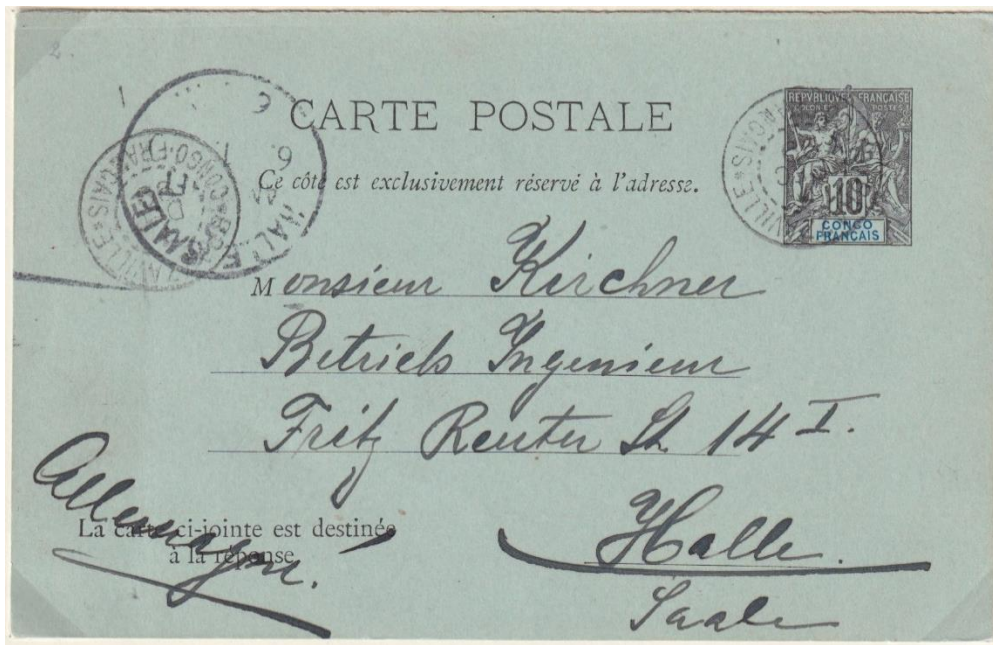 2.
CARTE POSTALE
Ce côté est exclusivement réservé à l'adresse.
REPVBLIQVE FRANÇAISE
COLONIES POSTES
10
CONGO
FRANÇAIS
Monsieur Kirchner
Betriebs Ingenieur
Fritz Reuter St. 14 I.
Halle.
Saale
Allemagne.
La carte ci-jointe est destinée
à la réponse.
CONGO-FRANÇAIS
HALLE